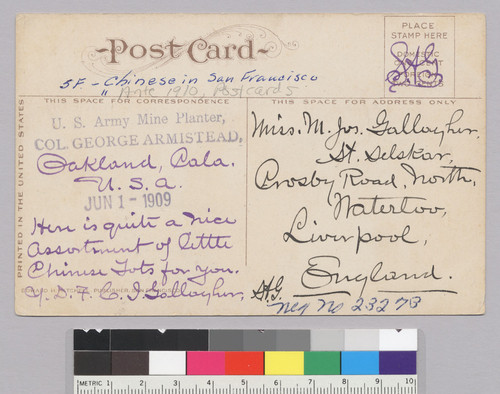 Post Card
PLACE
STAMP HERE
DOMESTIC
SF - Chinese in San Francisco
" Ante 1910, Postcards
THIS SPACE FOR CORRESPONDENCE
THIS SPACE FOR ADDRESS ONLY
PRINTED IN THE UNITED STATES
U. S. Army Mine Planter,
COL. GEORGE ARMISTEAD,
Oakland, Cala.
U. S. a.
JUN 1 - 1909
Here is quite a nice
assortment of little
Chinese Tots for you.
Y. D. F. C. J. Gallagher,
Miss. M. Jos. Gallagher,
St. Selskar,
Crosby Road, North,
Waterloo,
Liverpool,
England.
Neg No 23273
METRIC 1 2 3 4 5 6 7 8 9 10